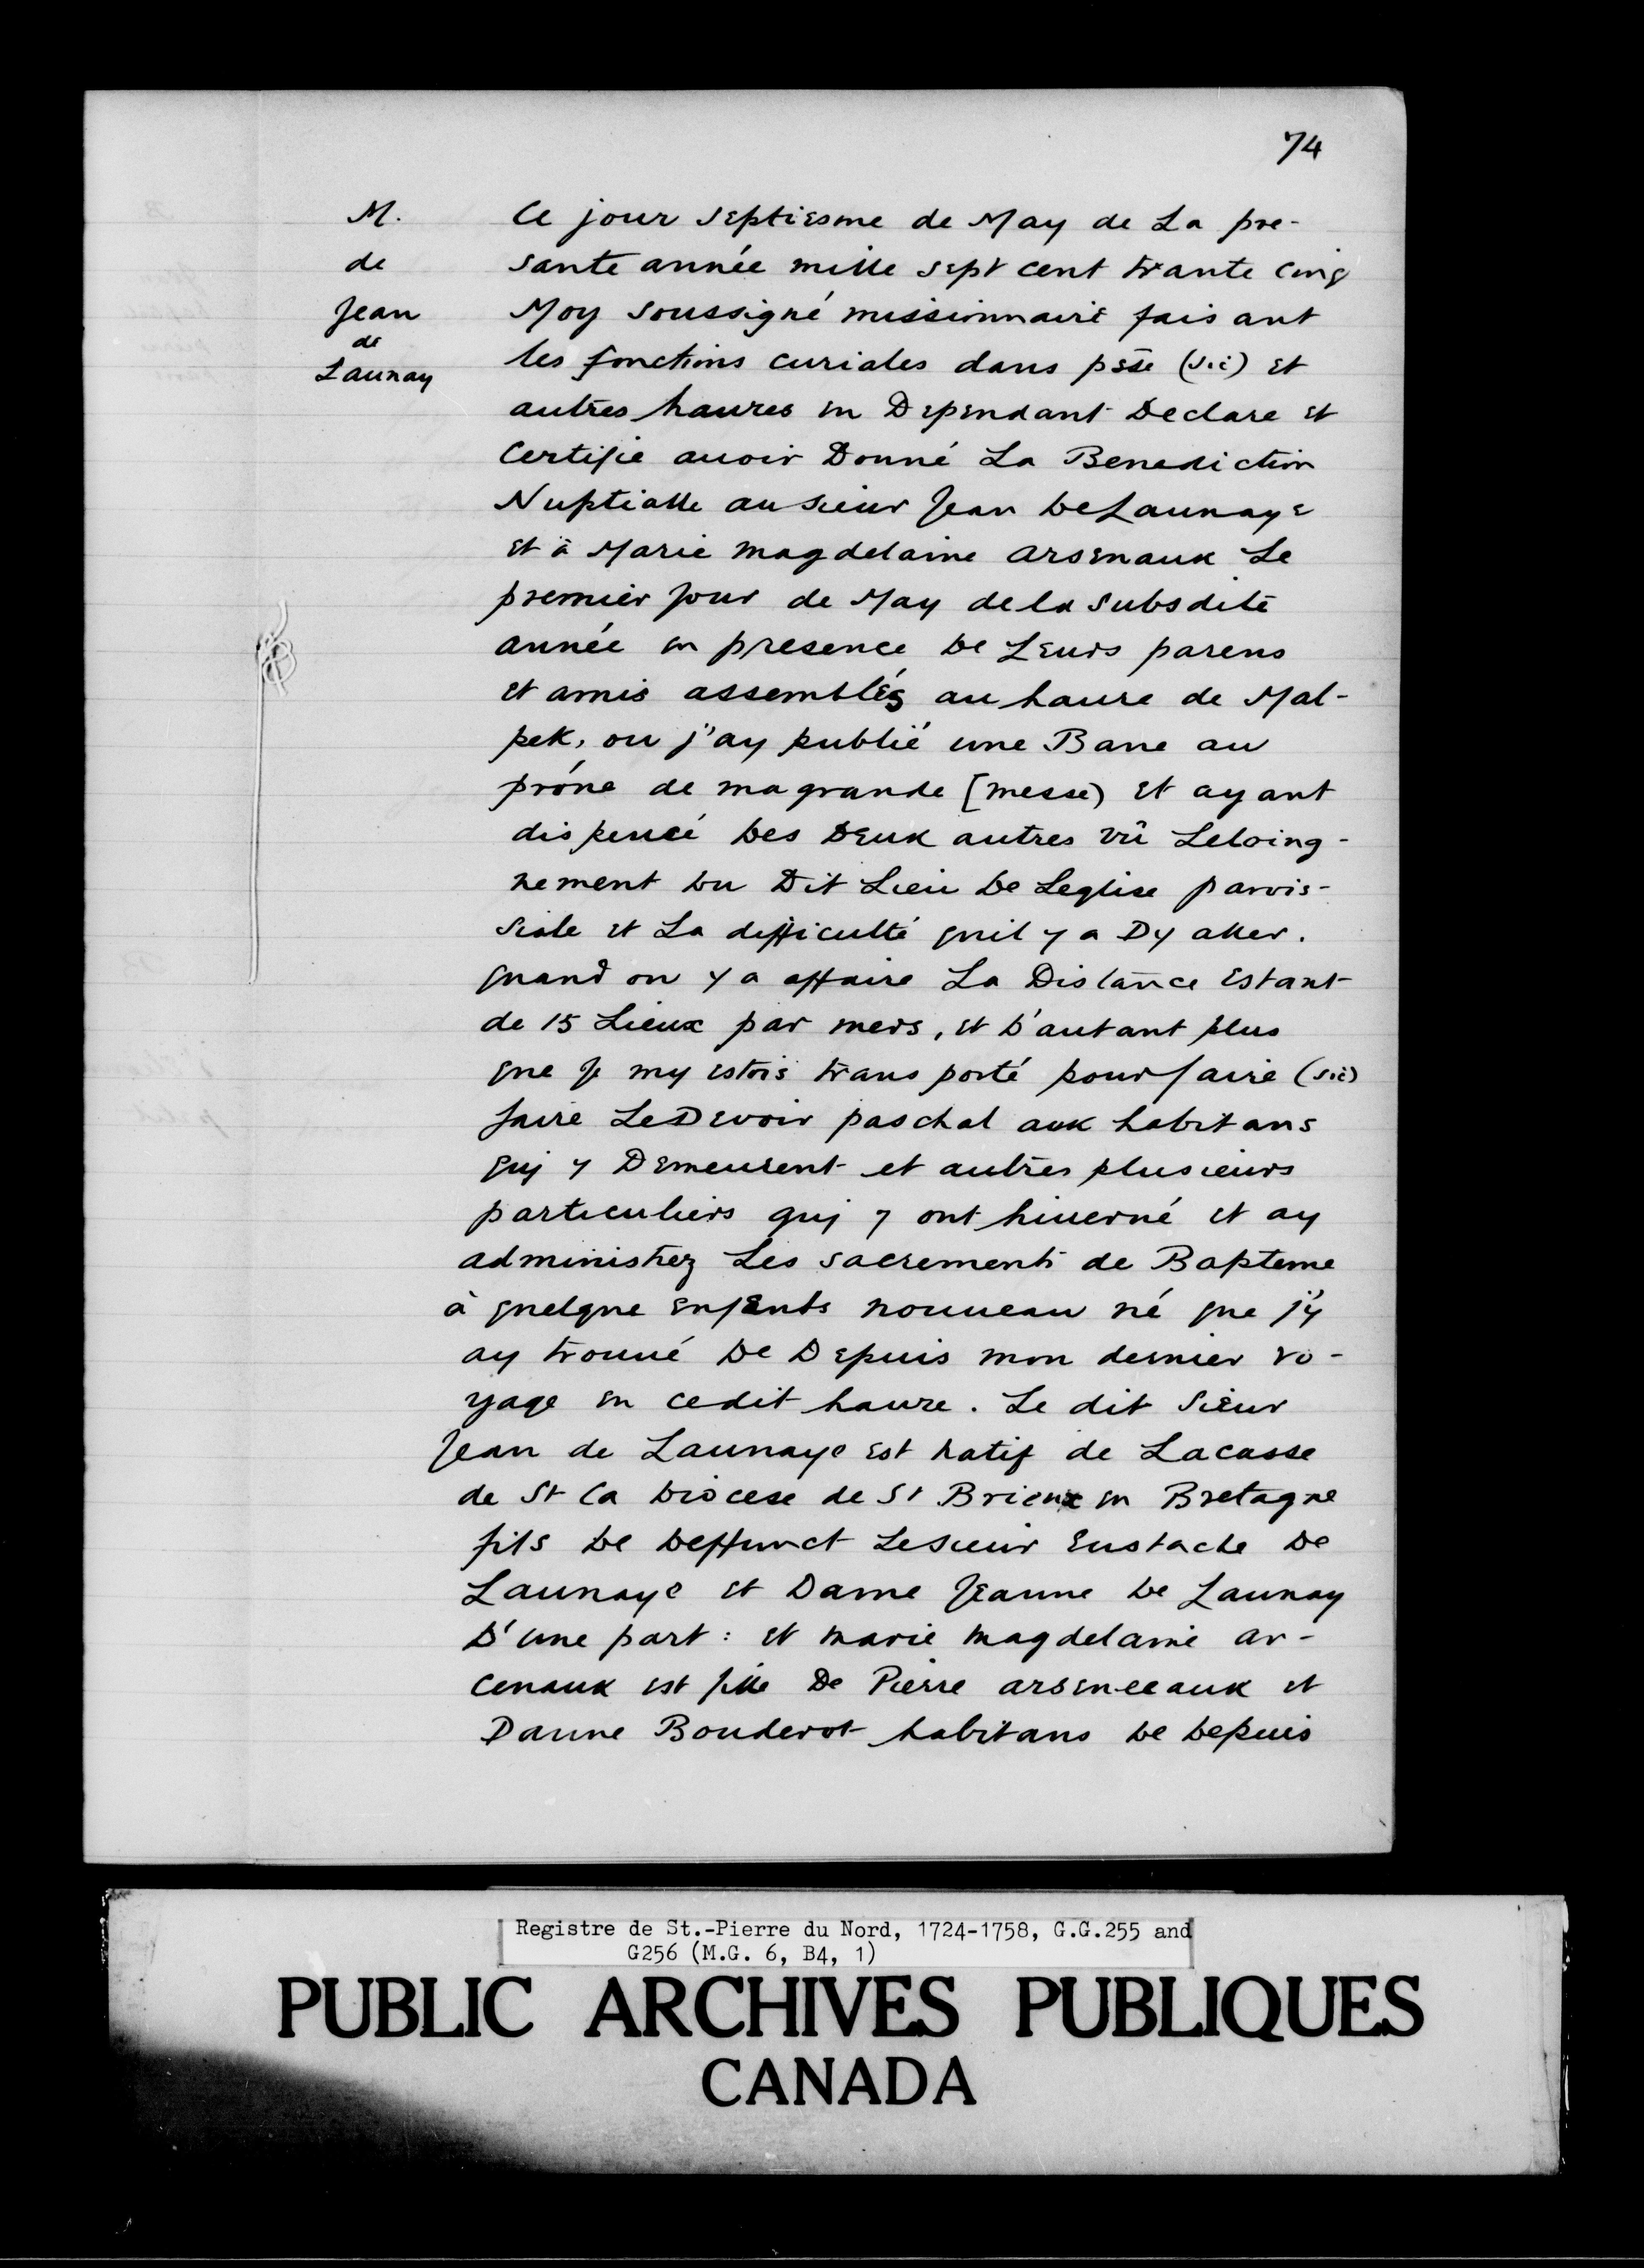 74
M.
de
Jean
de
Launay
Ce jour septiesme de May de La pre-
sante année mille sept cent trante cinq
Moy soussigné missionnaire faisant
les fonctions curiales dans pste (sic) et
autres haures en Dependant Declare et
Certifie auoir Donné La Benediction
Nuptialle au sieur Jean DeLaunaye
et à Marie magdelaine arsenaux Le
premier Jour de May de la subsdite
année en presence De Leurs parens
et amis assemblés au haure de Mal-
pek, ou j'ay publié une Bane au
prône de ma grande [messe) et ayant
dispencé Des Deux autres vû Leloing-
nement Du Dit Lieu De Leglise parois-
siale et La difficulté quil y a Dy aller.
quand on y a affaire La Distance estant
de 15 Lieux par mers, et D'autant plus
que Je my estois transporté pour faire (sic)
faire LeDevoir paschal aux habitans
quj y Demeurent et autres plusieurs
particuliers quj y ont hiuerné et ay
administrez Les sacrements de Bapteme
à quelque enfents nouueau né que j'y
ay trouué De Depuis mon dernier vo-
yage en cedit haure. Le dit Sieur
Jean de Launaye est natif de Lacasse
de St Ca Diocese de St Brieux en Bretagne
fils De Deffunct Lesieur Eustache De
Launaye et Dame Jeanne De Launay
D'une part: et marie magdelaine ar-
cenaux est fille De Pierre arseneeaux et
Danne Bouderot habitans De Depuis
Registre de St.-Pierre du Nord, 1724-1758, G.G.255 and
G256 (M.G. 6, B4, 1)
PUBLIC ARCHIVES PUBLIQUES
CANADA